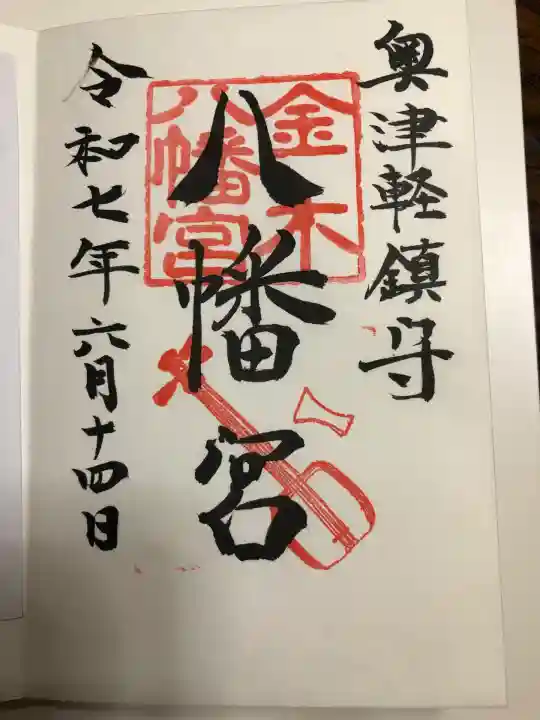 奥津軽鎮守
金木
八幡宮
八幡宮
令和七年六月十四日